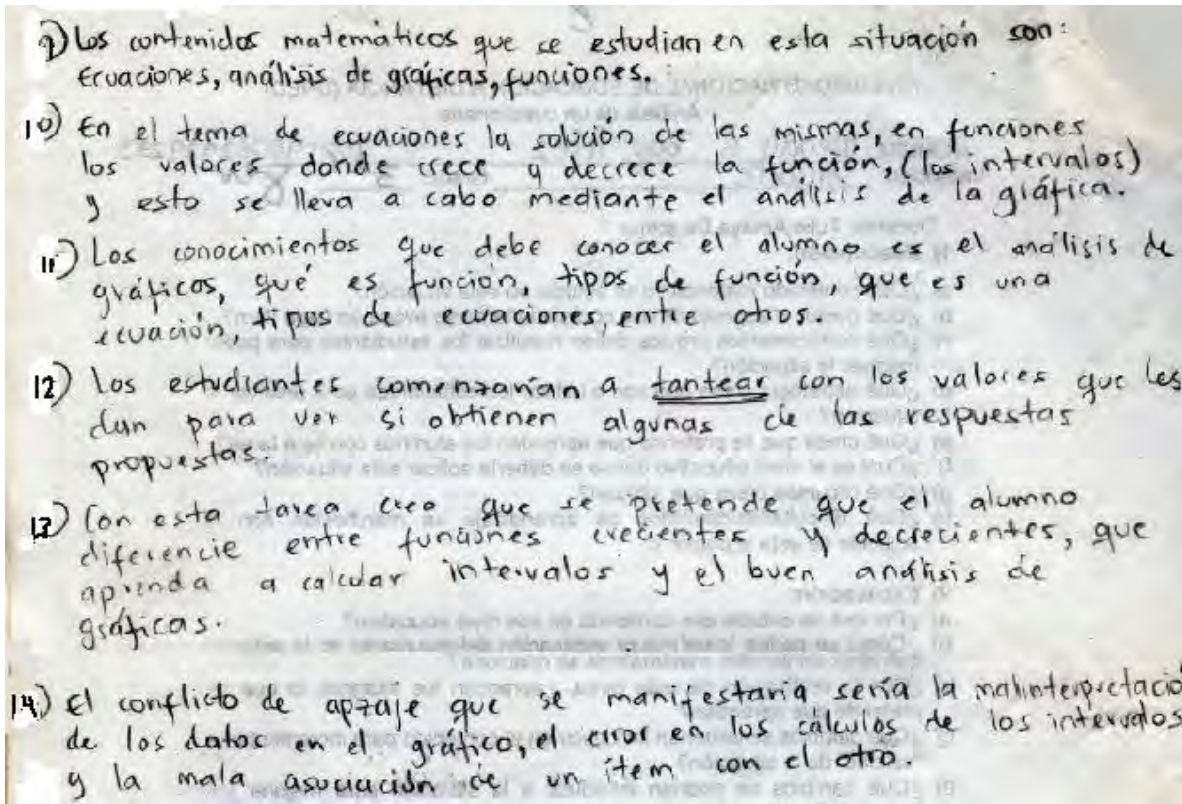 9) Los contenidos matemáticos que se estudian en esta situación son:
Ecuaciones, análisis de gráficas, funciones.
10) En el tema de ecuaciones la solución de las mismas, en funciones
los valores donde crece y decrece la función, (los intervalos)
y esto se lleva a cabo mediante el análisis de la gráfica.
11) Los conocimientos que debe conocer el alumno es el análisis de
gráficos, qué es función, tipos de función, que es una
ecuación, tipos de ecuaciones, entre otros.
12) Los estudiantes comenzarían a tantear con los valores que les
dan para ver si obtienen algunas de las respuestas
propuestas.
13) Con esta tarea creo que se pretende que el alumno
diferencie entre funciones crecientes y decrecientes, que
aprenda a calcular intervalos y el buen análisis de
gráficas.
14) El conflicto de apzaje que se manifestaría sería la malinterpretació
de los datos en el gráfico, el error en los cálculos de los intervalos
y la mala asociación de un ítem con el otro.